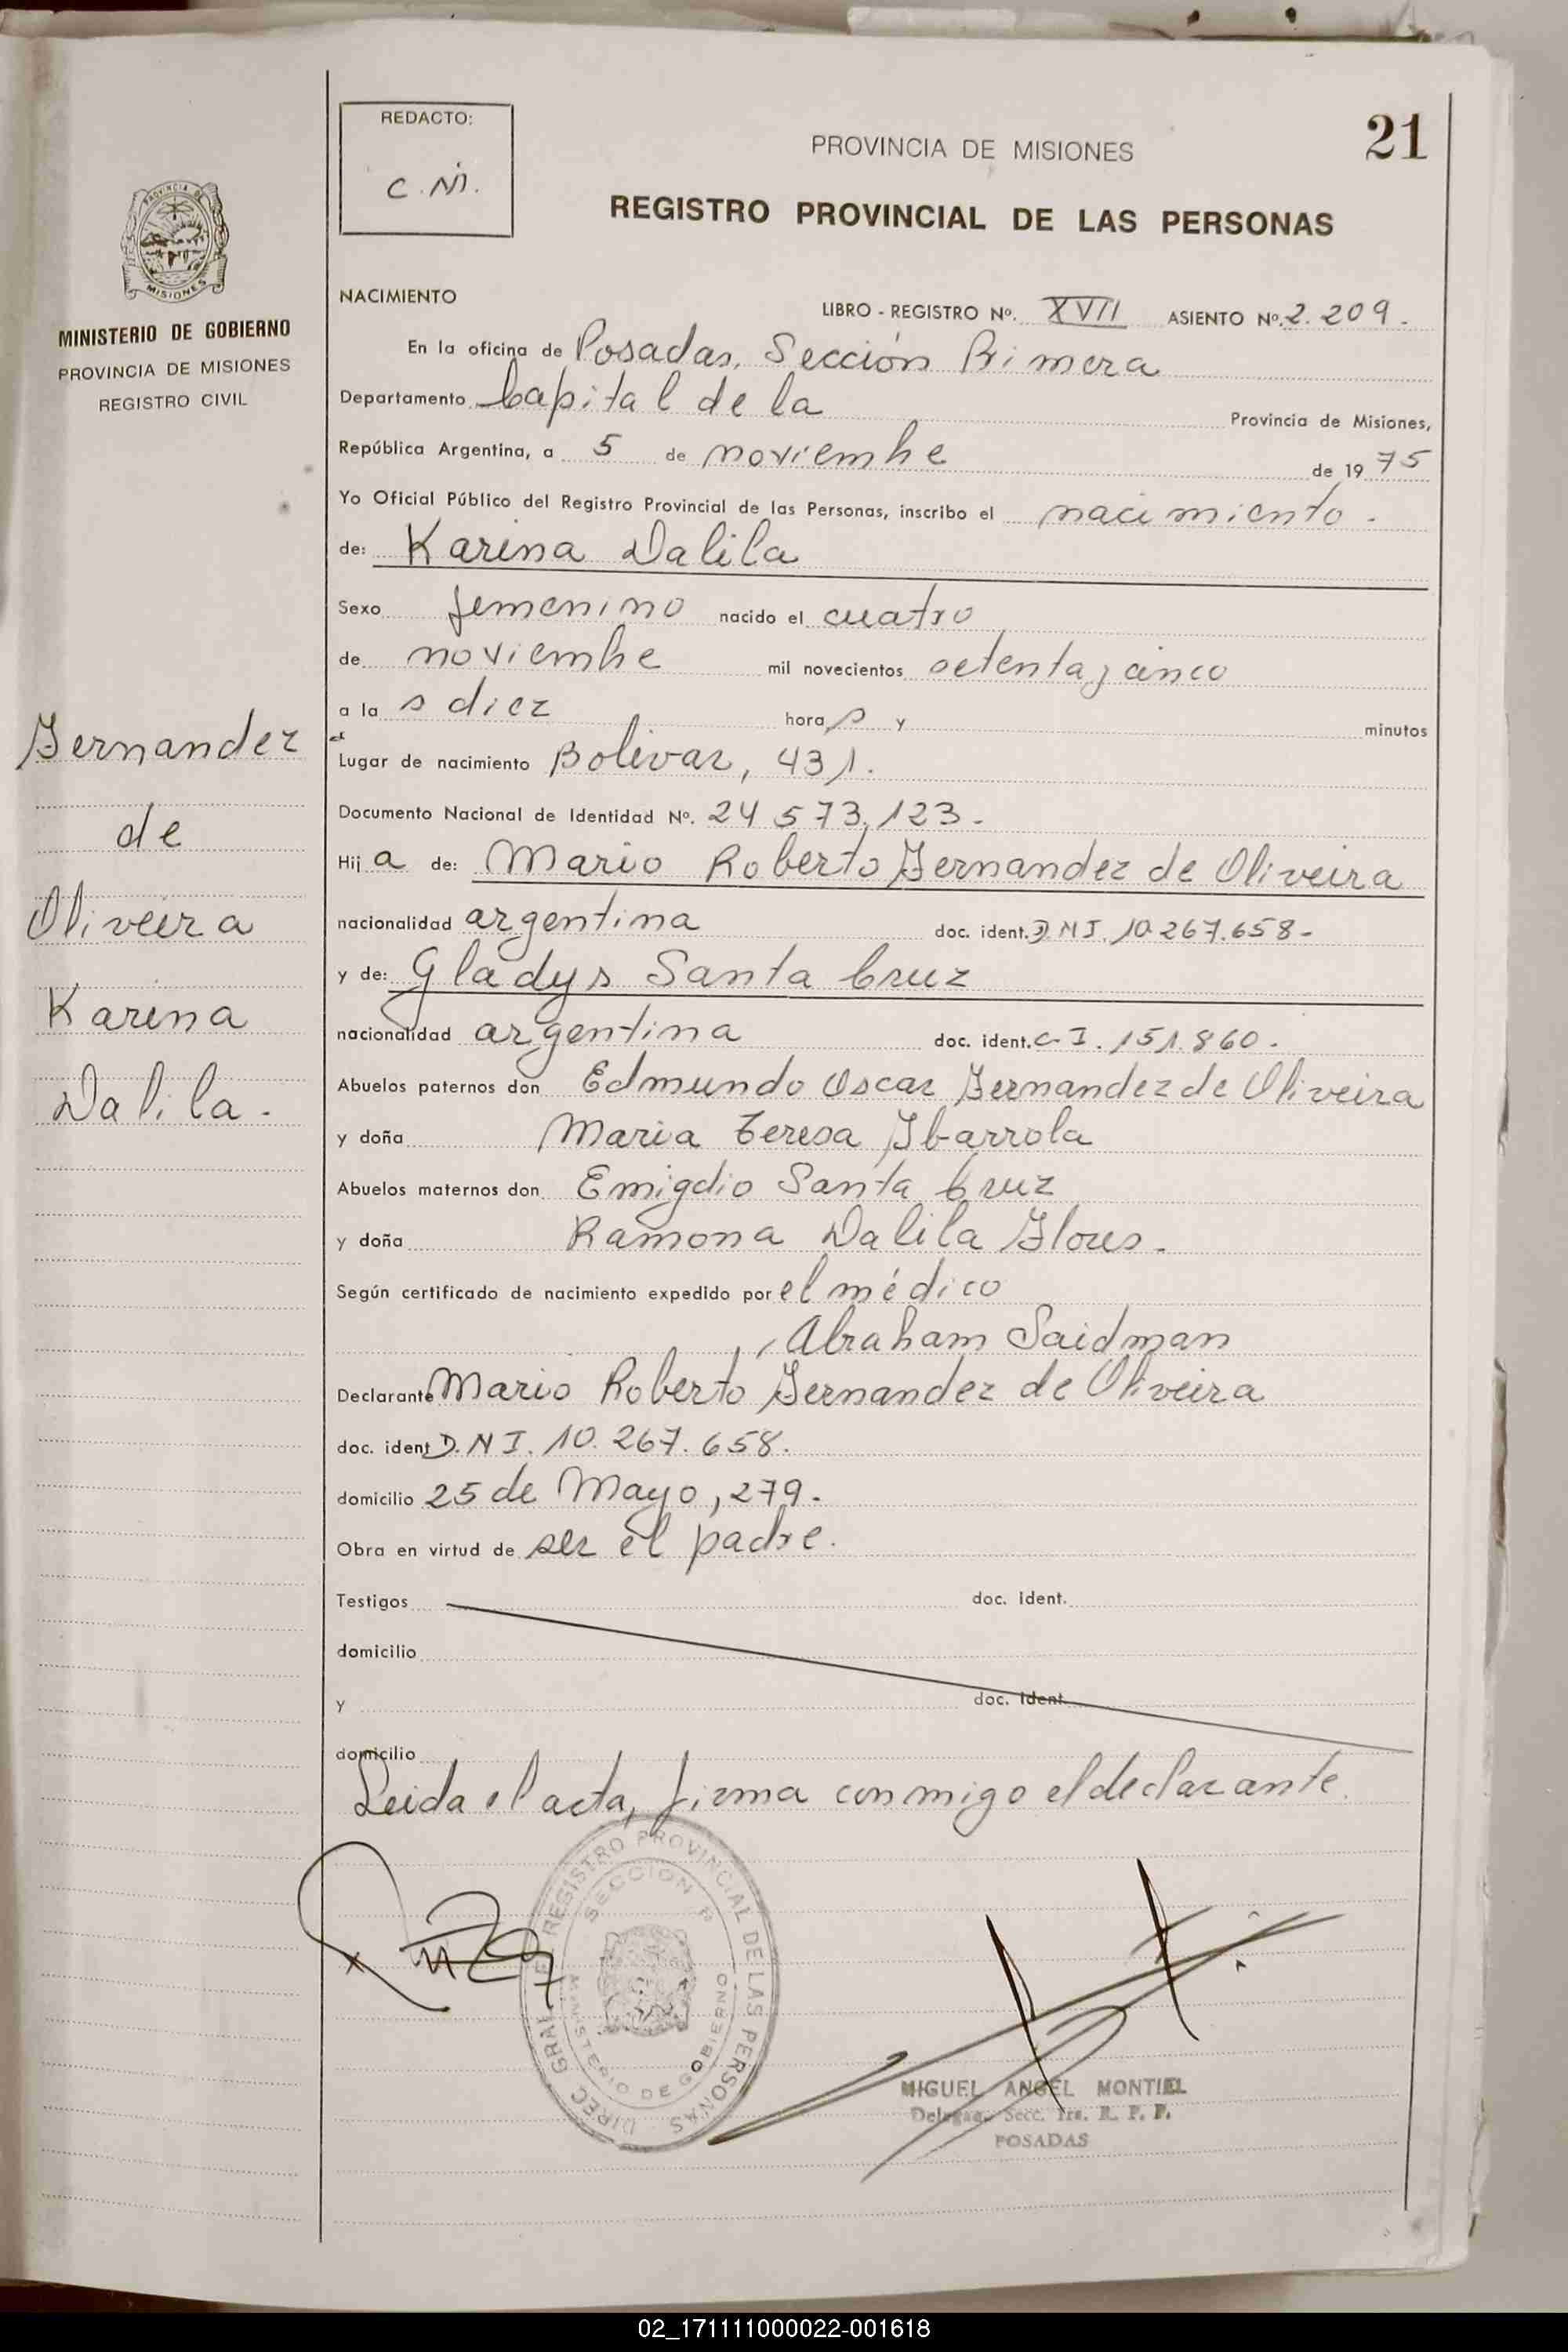 REDACTO:
C. M.
21
PROVINCIA DE MISIONES
REGISTRO PROVINCIAL DE LAS PERSONAS
PROVINCIA DE
MISIONES
MINISTERIO DE GOBIERNO
PROVINCIA DE MISIONES
REGISTRO CIVIL
Fernandez
de
Oliveira
Karina
Dalila.
NACIMIENTO
LIBRO - REGISTRO Nº. XVII ASIENTO Nº. 2.209.
En la oficina de Posadas, Sección Primera
Departamento Capital de la Provincia de Misiones,
República Argentina, a 5 de noviembre de 19 75
Yo Oficial Público del Registro Provincial de las Personas, inscribo el nacimiento.
de: Karina Dalila
Sexo femenino nacido el cuatro
de noviembre mil novecientos setenta y cinco
a la s diez hora s y minutos
Lugar de nacimiento Bolivar, 431.
Documento Nacional de Identidad Nº. 24 573.123.
Hij a de: Mario Roberto Fernandez de Oliveira
nacionalidad argentina doc. ident. D.N I. 10.267.658-
y de: Gladys Santa Cruz
nacionalidad argentina doc. ident. C.I. 151.860.
Abuelos paternos don Edmundo Oscar Fernandez de Oliveira
y doña Maria Teresa Ibarrola
Abuelos maternos don Emigdio Santa Cruz
y doña Ramona Dalila Flores.
Según certificado de nacimiento expedido por el médico
Abraham Saidman
Declarante Mario Roberto Fernandez de Oliveira
doc. ident D.N I. 10.267.658.
domicilio 25 de Mayo, 279.
Obra en virtud de ser el padre.
Testigos doc. ident.
domicilio
y doc. ident.
domicilio
Leida el acta, firma conmigo el declarante.
DIREC. GRAL. REGISTRO PROVINCIAL DE LAS PERSONAS
SECCION 1ª
MINISTERIO DE GOBIERNO
MIGUEL ANGEL MONTIEL
Delegad. Secc. 1ra. R. P. P.
POSADAS
02_171111000022-001618